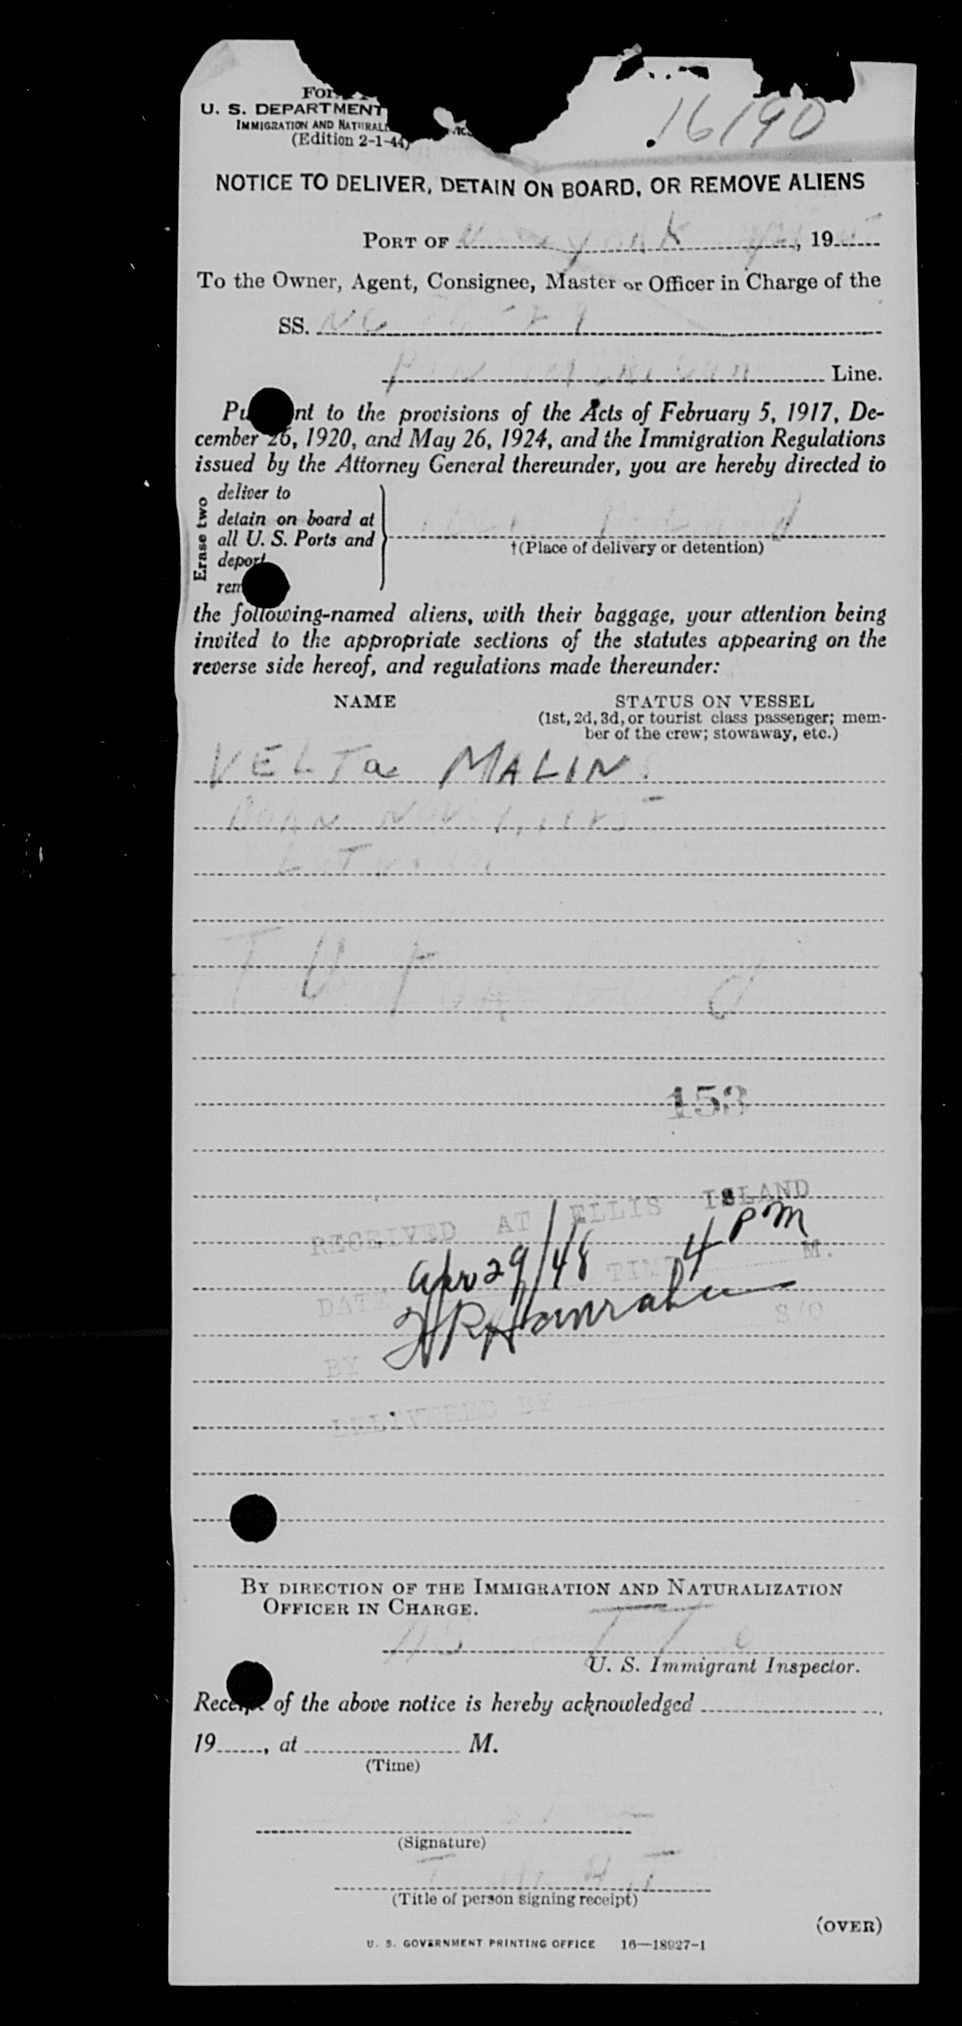 For
U. S. DEPARTMENT
IMMIGRATION AND
(Edition 2-1-44)
16190
NOTICE TO DELIVER, DETAIN ON BOARD, OR REMOVE ALIENS
PORT OF New York, 19
To the Owner, Agent, Consignee, Master or Officer in Charge of the
SS.
Pan American Line.
nt to the provisions of the Acts of February 5, 1917, De-
cember 26, 1920, and May 26, 1924, and the Immigration Regulations
issued by the Attorney General thereunder, you are hereby directed to
Erase two
deliver to
detain on board at
all U. S. Ports and
deport
rem
†(Place of delivery or detention)
the following-named aliens, with their baggage, your attention being
invited to the appropriate sections of the statutes appearing on the
reverse side hereof, and regulations made thereunder:
NAME STATUS ON VESSEL
(1st, 2d, 3d, or tourist class passenger; mem-
ber of the crew; stowaway, etc.)
VELTa MALIN
BORN NOV
153
RECEIVED AT ELLIS ISLAND
DATE Apr 29/48 TIME 4 PM M.
BY S/O
DELIVERED BY
BY DIRECTION OF THE IMMIGRATION AND NATURALIZATION
OFFICER IN CHARGE.
U. S. Immigrant Inspector.
Receipt of the above notice is hereby acknowledged
19, at M.
(Time)
(Signature)
(Title of person signing receipt)
(OVER)
U. S. GOVERNMENT PRINTING OFFICE 16—18927-1